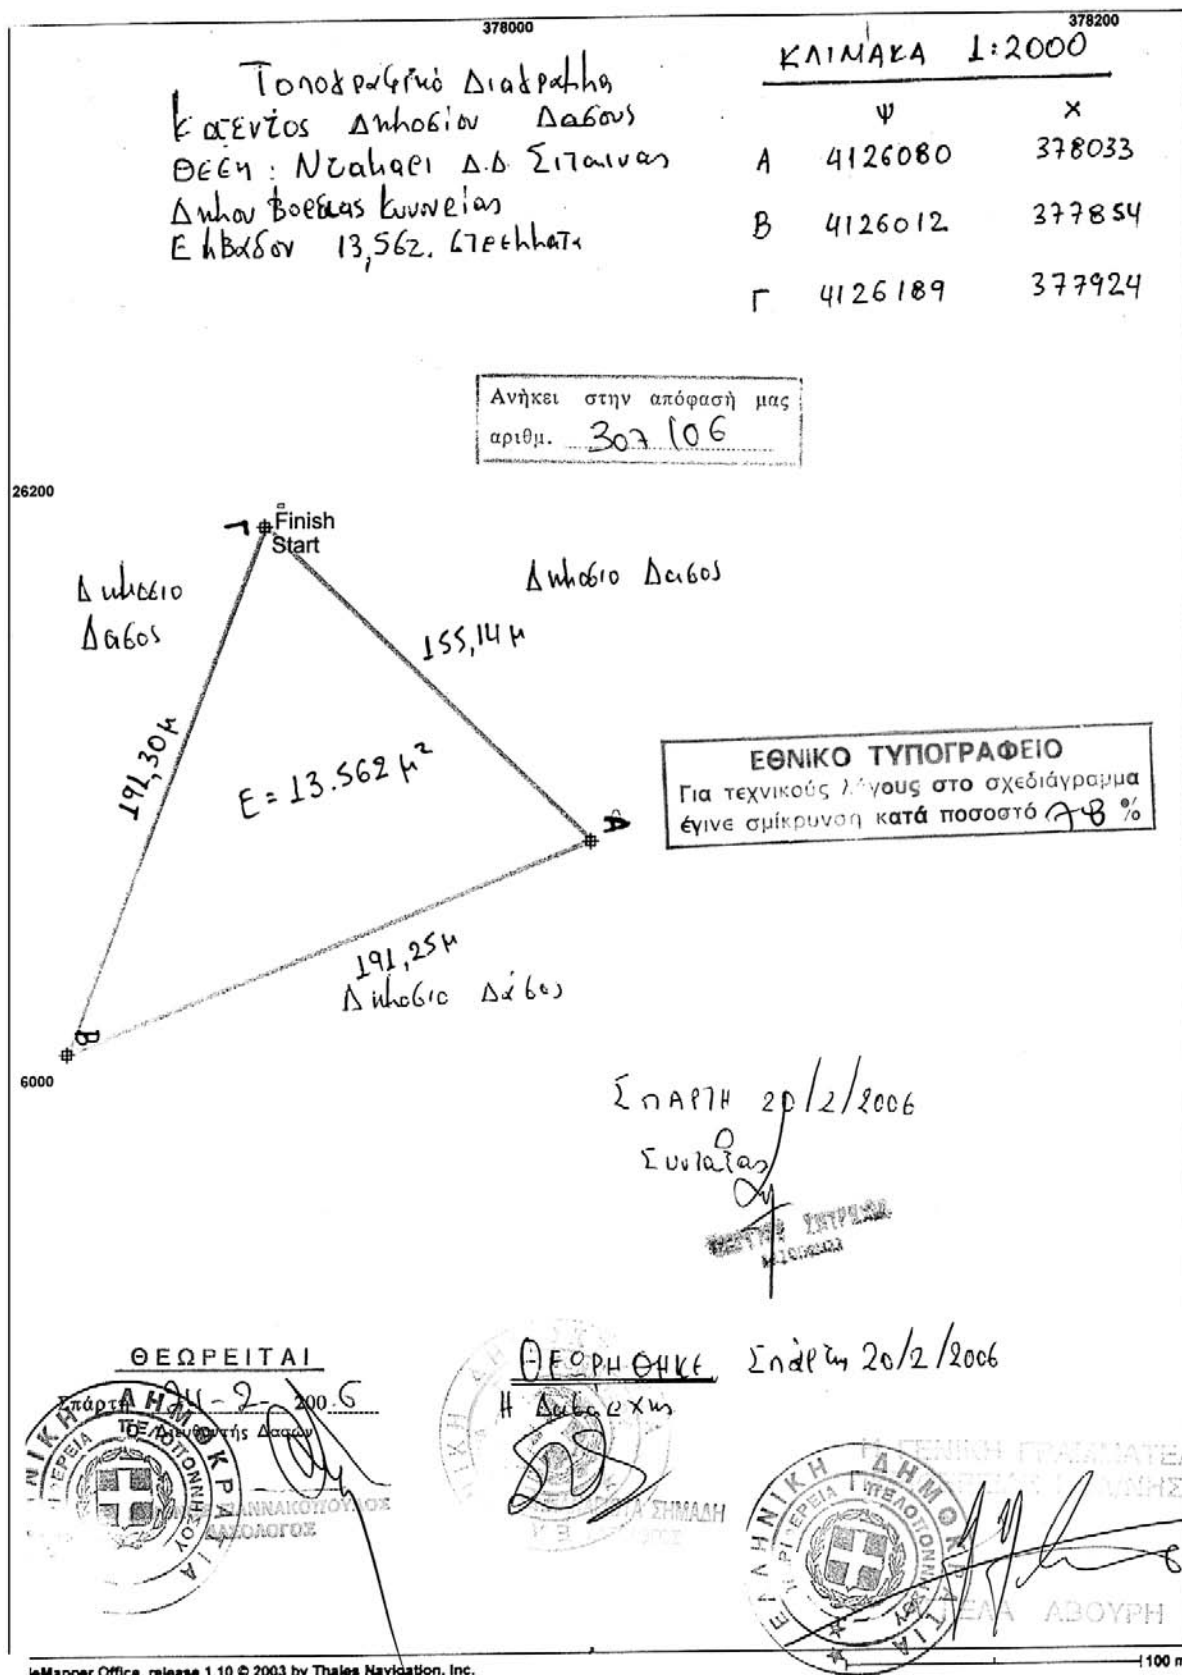 378000
378200
Τοπογραφικό Διάγραμμα
Καέντος Δημοσίου Δάσους
Θέση: Νταμαρι Δ.Δ. Σιταινας
Δήμου Βορειας Κυνουρίας
Εμβαδον 13,562. στρεμματα
ΚΛΙΜΑΚΑ 1:2000
Ψ Χ
Α 4126080 378033
Β 4126012 377854
Γ 4126189 377924
Ανήκει στην απόφασή μας
αριθμ. 307/06
26200
Γ
Finish
Start
Δημοσιο
Δασος
Δημοσιο Δασος
155,14 μ
191,30 μ
Ε = 13.562 μ²
ΕΘΝΙΚΟ ΤΥΠΟΓΡΑΦΕΙΟ
Για τεχνικούς λόγους στο σχεδιάγραμμα
έγινε σμίκρυνση κατά ποσοστό 78 %
Α
191,25 μ
Δημοσιο Δάσος
Β
6000
ΣΠΑΡΤΗ 20/2/2006
Ο
Συντάξας
ΘΕΩΡΕΙΤΑΙ
Σπάρτη 24-2-2006
Ο Διευθυντής Δασών
ΓΙΑΝΝΑΚΟΠΟΥΛΟΣ
ΔΑΣΟΛΟΓΟΣ
ΘΕΟΡΗΘΗΚΕ Σπάρτη 20/2/2006
Η Δασάρχης
ΣΗΜΑΔΗ
ΕΛΛΗΝΙΚΗ ΔΗΜΟΚΡΑΤΙΑ
ΠΕΡΙΦΕΡΕΙΑ ΠΕΛΟΠΟΝΝΗΣΟΥ
Η ΓΕΝΙΚΗ ΓΡΑΜΜΑΤΕΑ
ΑΒΟΥΡΗ
leMapper Office, release 1.10 © 2003 by Thales Navigation, Inc.
100 m